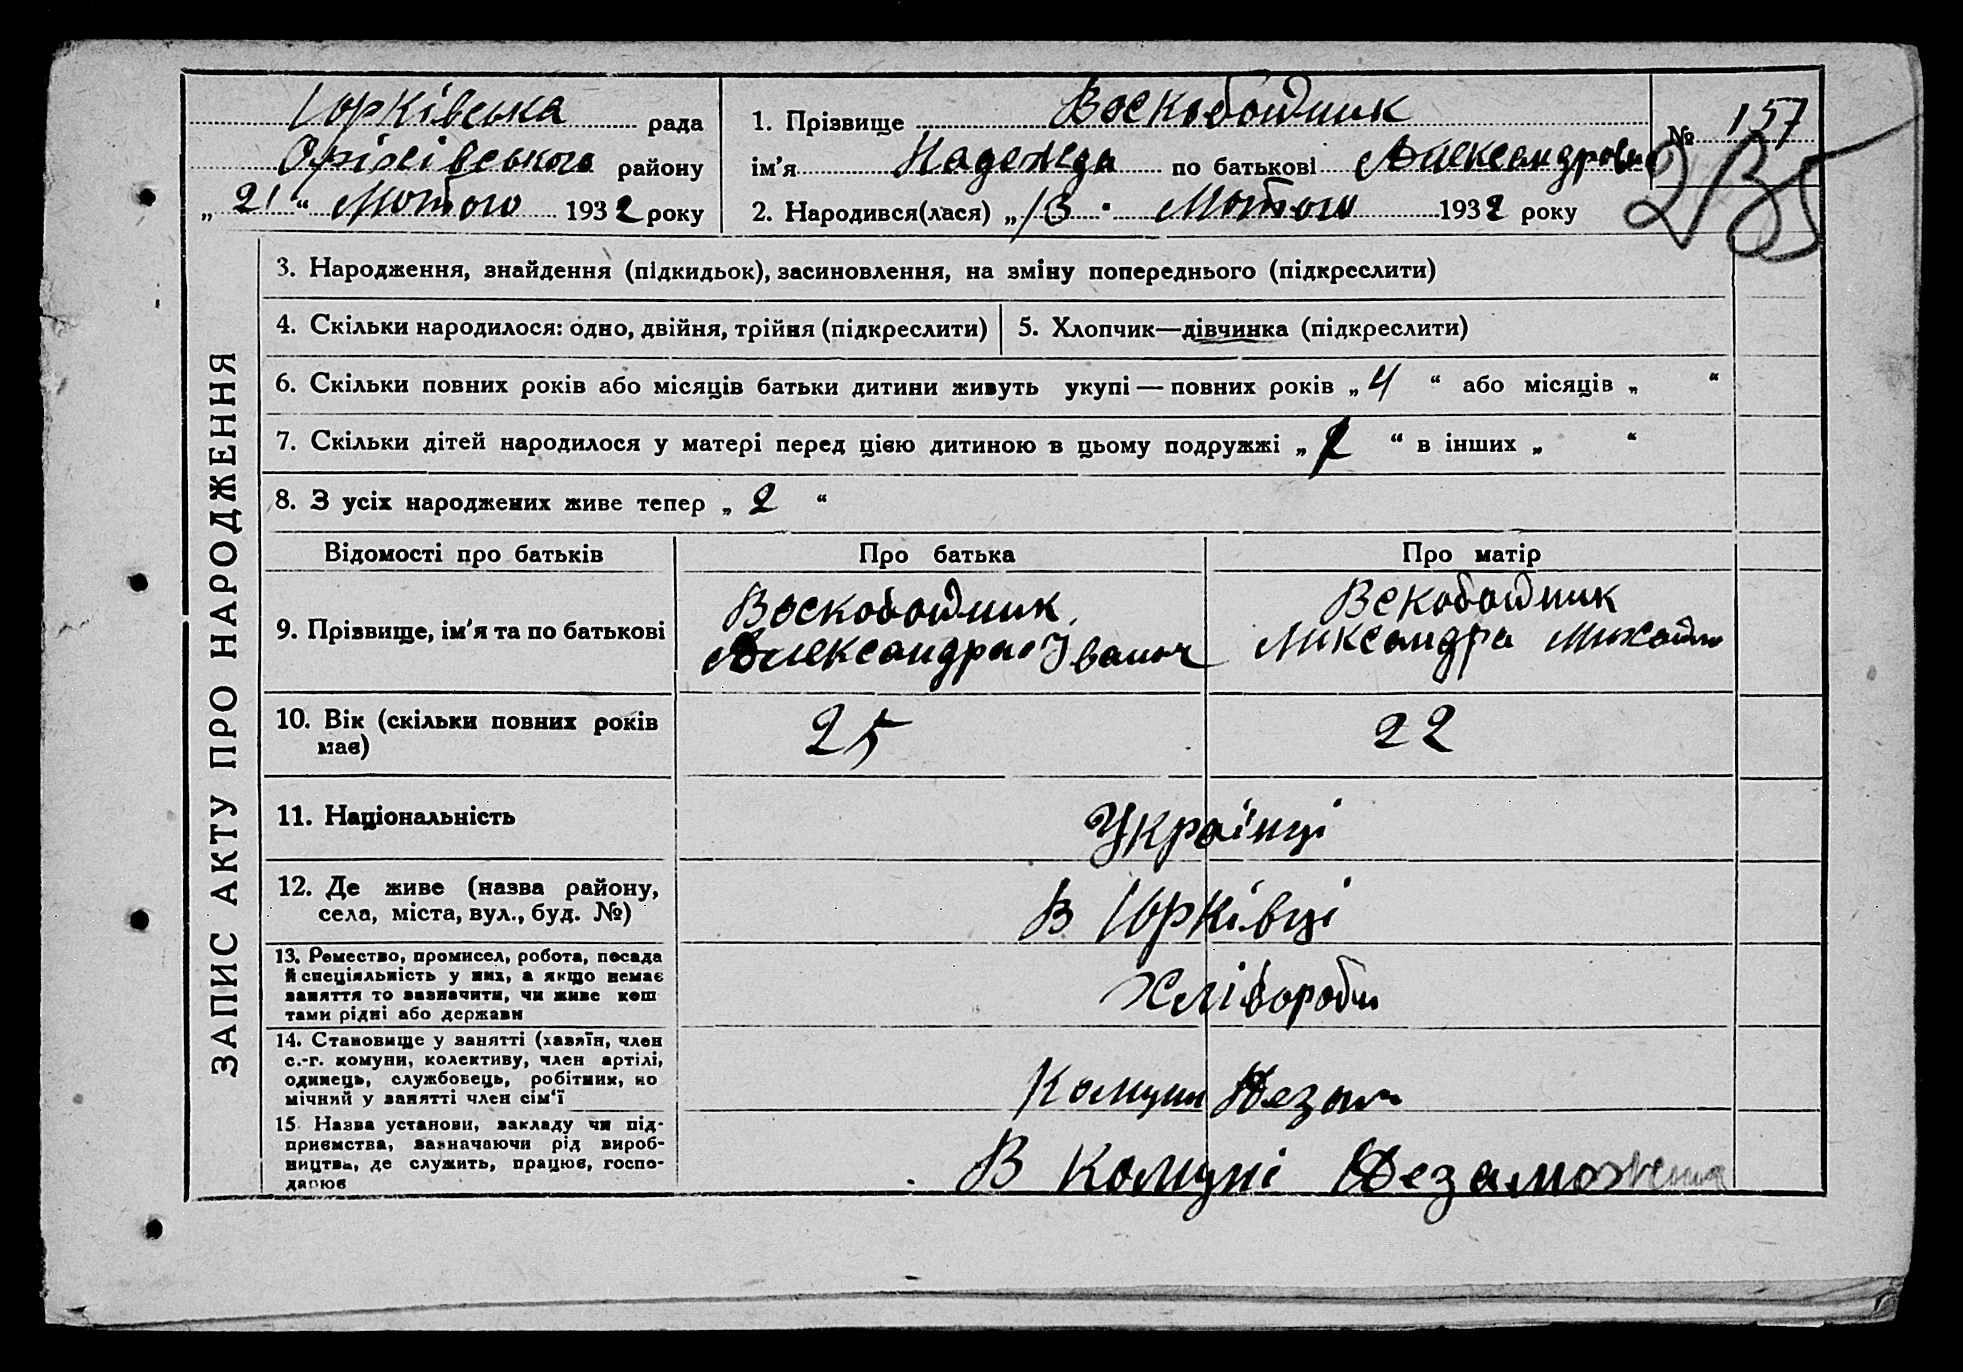 Юрківська рада
Оржівського району
„ 21 “ Лютого 1932 року
1. Прізвище Воскобойник
ім'я Надежда по батькові Александровна
2. Народився(лася) „ 13 “ Лютого 1932 року
№ 157
235
ЗАПИС АКТУ ПРО НАРОДЖЕННЯ
3. Народження, знайдення (підкидьок), засиновлення, на зміну попереднього (підкреслити)
4. Скільки народилося: одно, двійня, трійня (підкреслити)
5. Хлопчик—дівчинка (підкреслити)
6. Скільки повних років або місяців батьки дитини живуть укупі — повних років „ 4 “ або місяців „ “
7. Скільки дітей народилося у матері перед цією дитиною в цьому подружжі „ “ в інших „ “
8. З усіх народжених живе тепер „ 2 “
Відомості про батьків
Про батька
Про матір
9. Прізвище, ім'я та по батькові
Воскобойник
Александра Іванич
Вскобойник
Ликсандра Михайл
10. Вік (скільки повних років
має)
25
22
11. Національність
Українці
12. Де живе (назва району,
села, міста, вул., буд. №)
В Юрківці
13. Ремество, промисел, робота, посада
й спеціяльність у них, а якщо немає
заняття то зазначити, чи живе кош
тами рідні або держави
Хлібороби
14. Становище у занятті (хазяїн, член
с.-г. комуни, колективу, член артілі,
одинець, службовець, робітник, по
мічний у занятті член сім'ї
Комуни Незам
15 Назва установи, закладу чи під-
приємства, зазначаючи рід вироб-
ництва, де служить, працює, госпо-
дарює
В комуні Незаможник